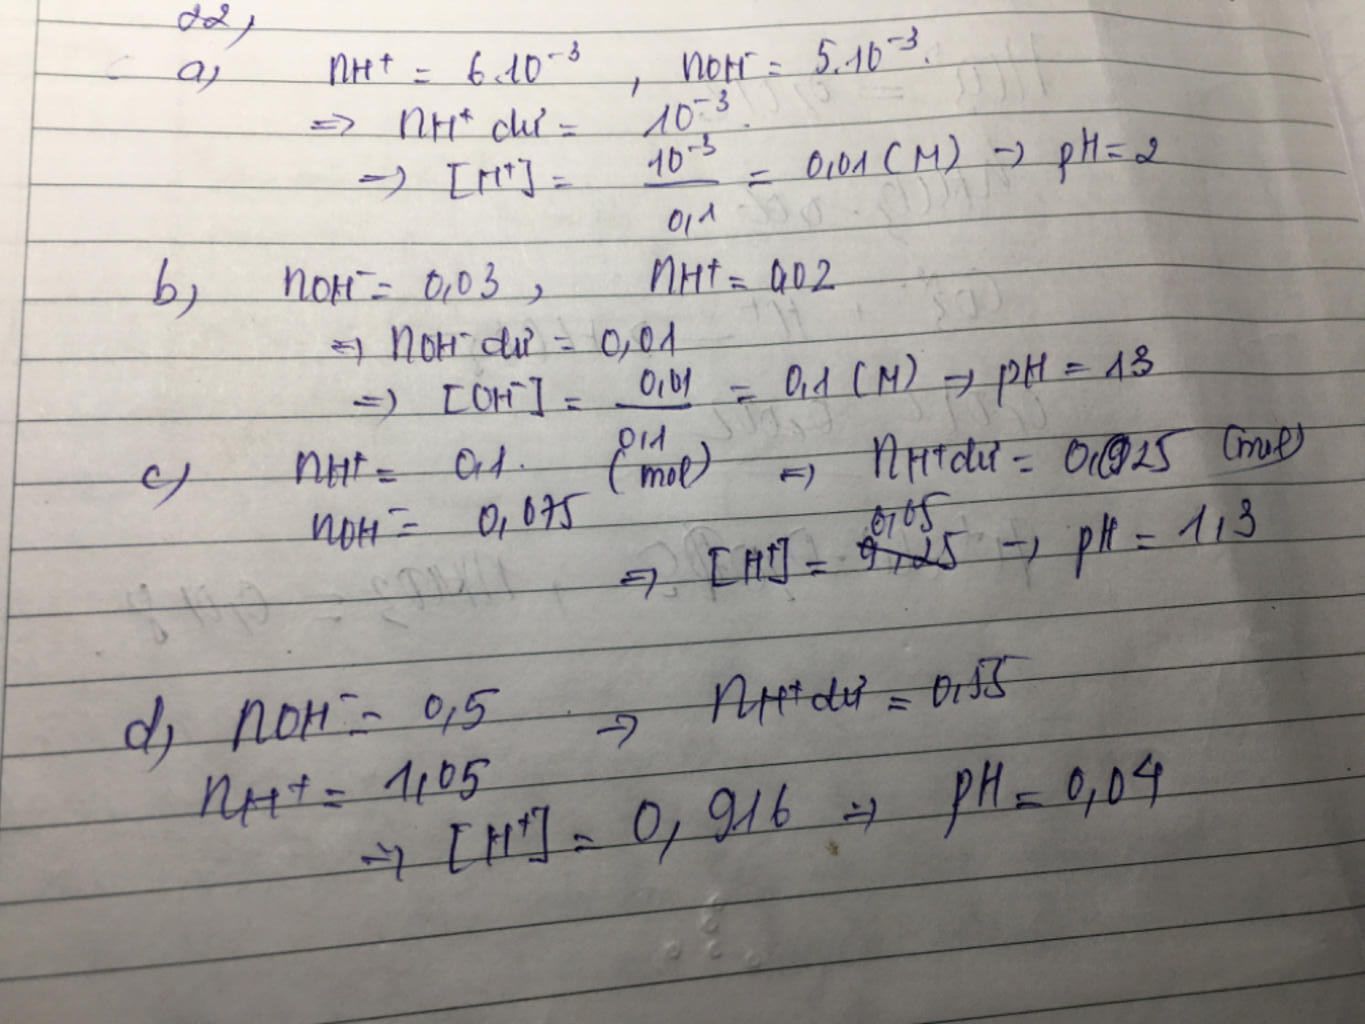 22,
a, nH⁺ = 6.10⁻³ , nOH⁻ = 5.10⁻³.
=> nH⁺ dư = 10⁻³.
=> [H⁺] = 10⁻³ / 0,1 = 0,01 (M) -> pH = 2
b, nOH⁻ = 0,03 , nH⁺ = 0,02
=> nOH⁻ dư = 0,01
=> [OH⁻] = 0,01 / 0,1 = 0,1 (M) -> pH = 13
c) nH⁺ = 0,1. (mol) => nH⁺ dư = 0,025 (mol)
nOH⁻ = 0,075
=> [H⁺] = 0,05 -> pH = 1,3
d, nOH⁻ = 0,5 => nH⁺ dư = 0,55
nH⁺ = 1,05
=> [H⁺] = 0,916 => pH = 0,04